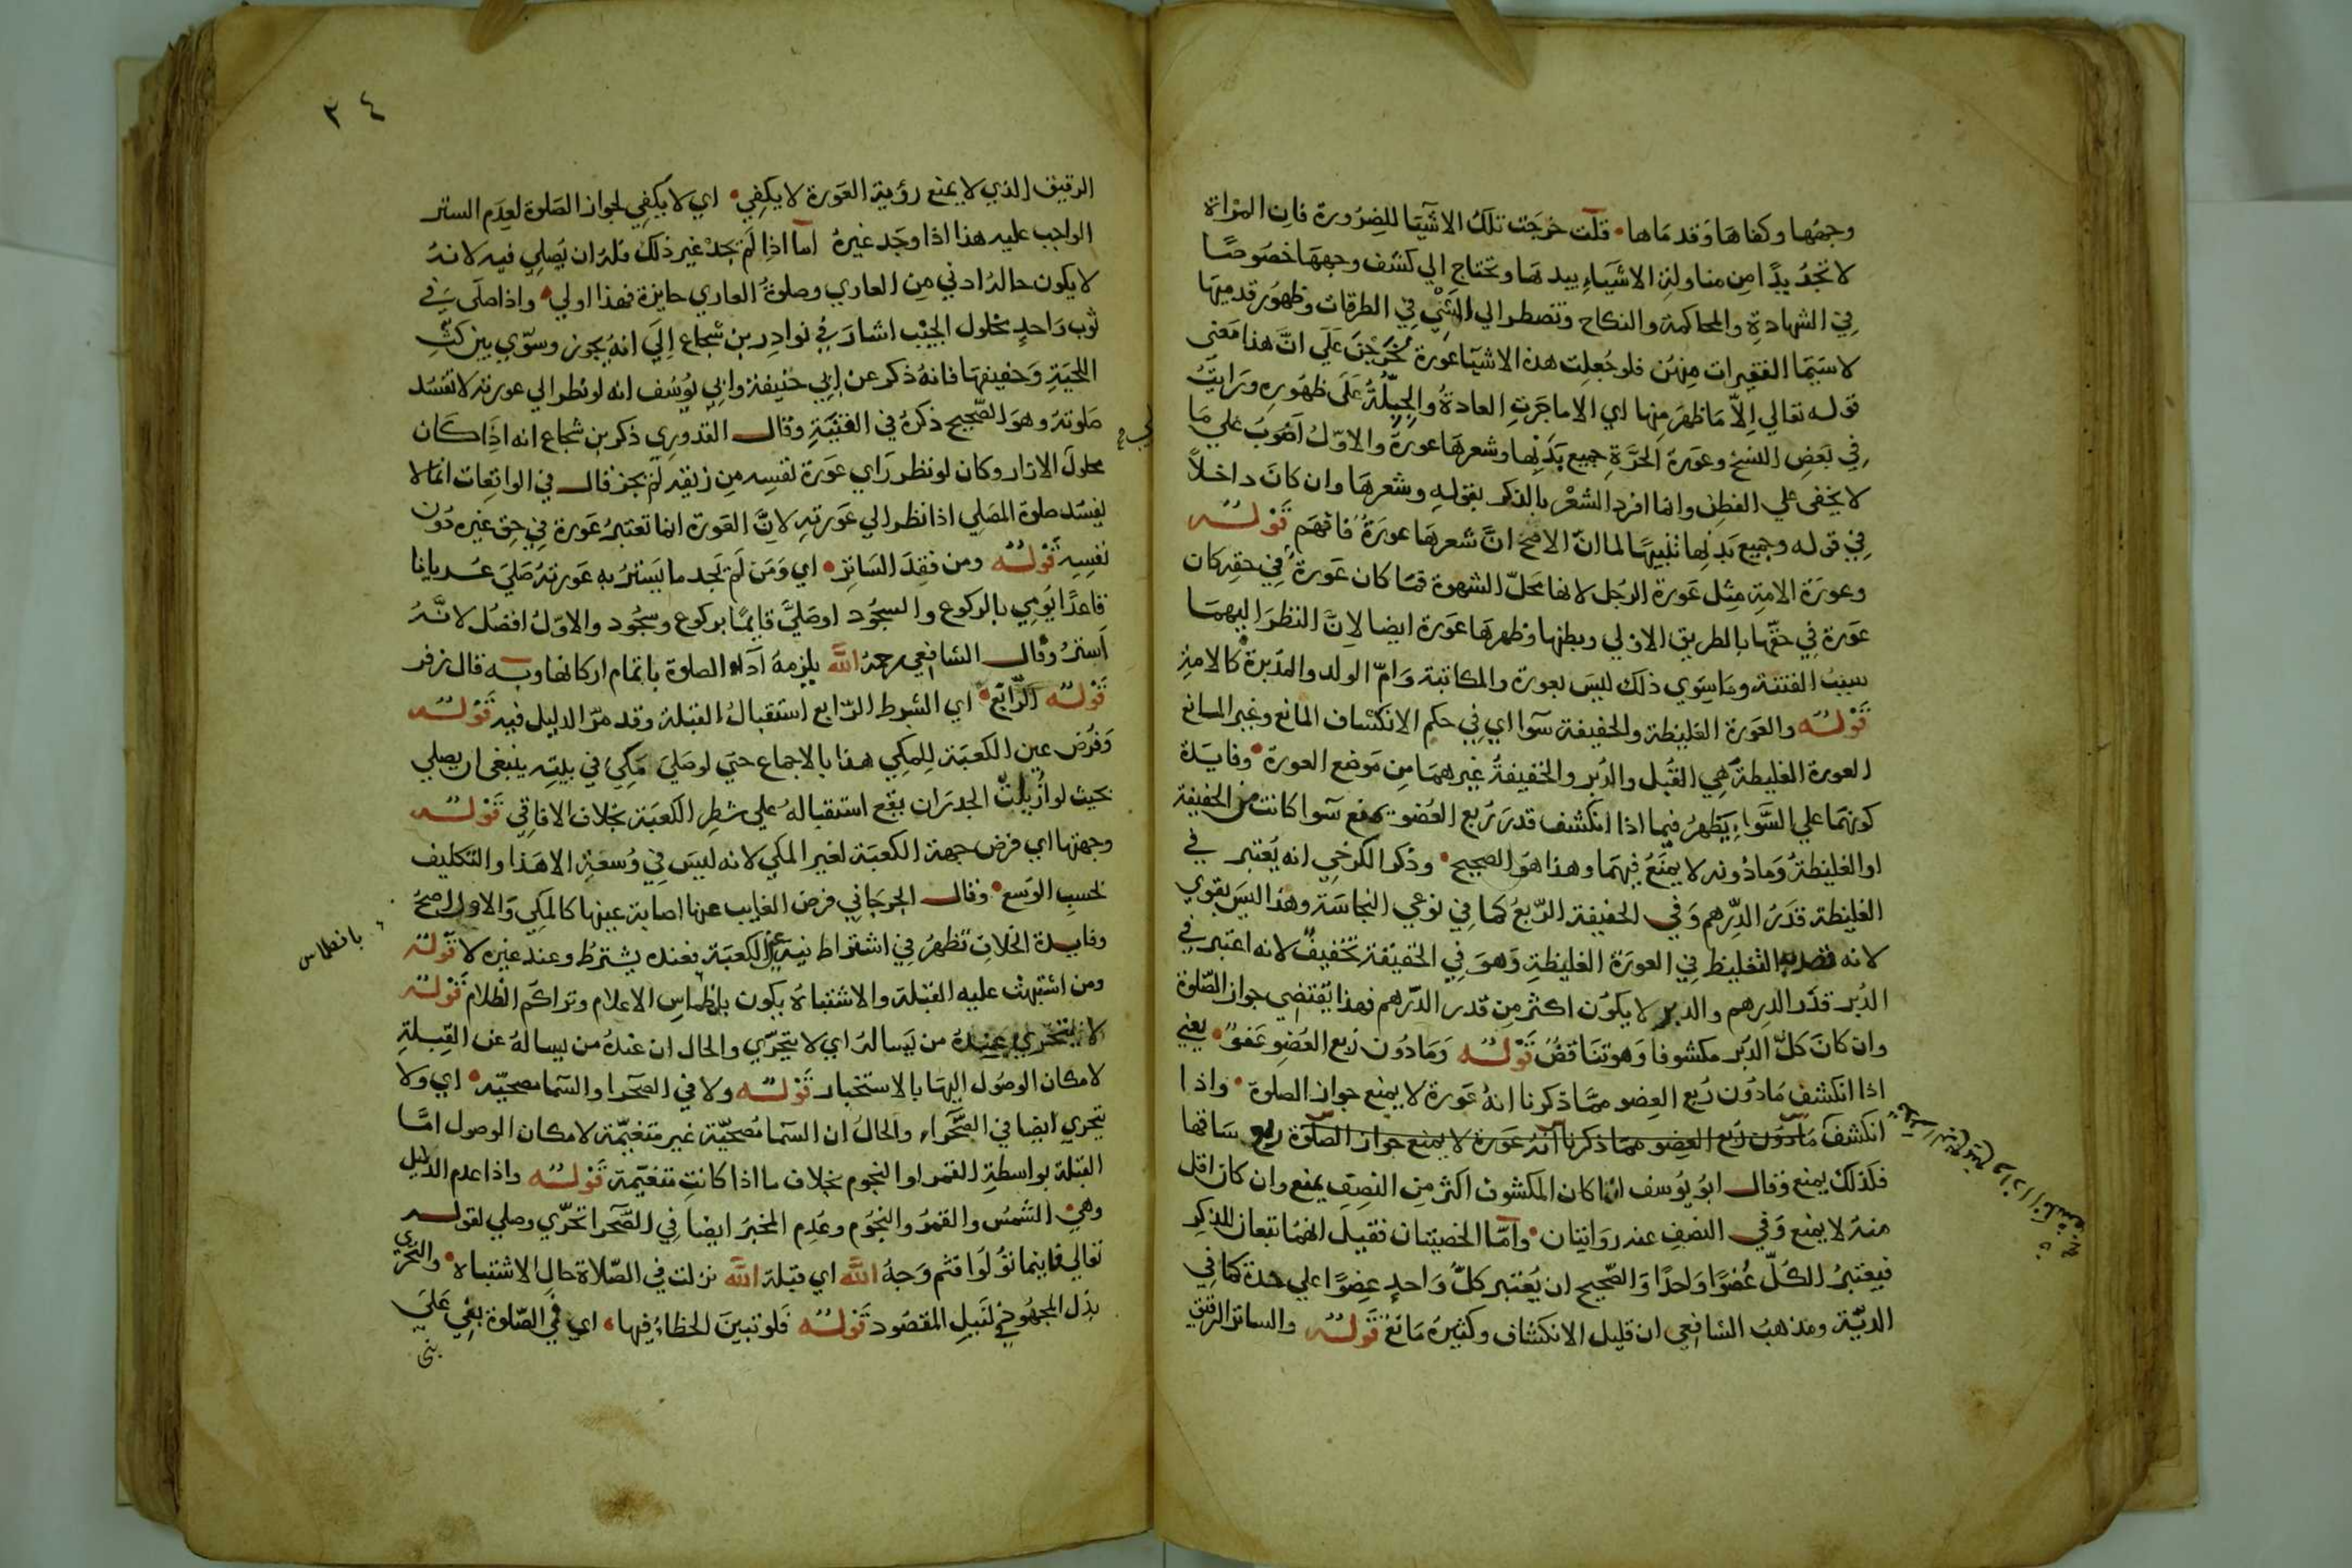 وجهها وكفاها وقدماها قلت خرجت تلك الاشيا للضرورة فان المراة
لا تجد بدا من مناولة الاشياء بيدها وتحتاج الي كشف وجهها خصوصا
في الشهادة والمحاكمة والنكاح وتضطر الي المشي في الطرقات وظهور قدميها
لا سيما الفقيرات منهن فلو جعلت هذه الاشيا عورة لحرجن علي ان هذا معني
قوله تعالي الا ما ظهر منها اي الا ما جرت العادة والجبلة علي ظهوره ورايت
في بعض النسخ وعورة الحرة جميع بدنها وشعرها عورة والاول اصوب علي ما
لا يخفي علي الفطن وانما افرد الشعر بالذكر بقوله وشعرها وان كان داخلا
في قوله وجميع بدنها تنبيها لما ان الاصح ان شعرها عورة فافهم قوله
وعورة الامة مثل عورة الرجل لانها محل الشهوة فما كان عورة في حقه كان
عورة في حقها بالطريق الاولي وبطنها وظهرها عورة ايضا لان النظر اليهما
سبب الفتنة وما سوي ذلك ليس بعورة والمكاتبة وام الولد والمدبرة كالامة
قوله والعورة الغليظة والخفيفة سوا اي في حكم الانكشاف المانع وغير المانع
العورة الغليظة هي القبل والدبر والخفيفة غيرهما من موضع العورة وفايدة
كونهما علي السواء يظهر فيما اذا انكشف قدر ربع العضو يمنع سوا كانت من الخفيفة
او الغليظة وما دونه لا يمنع فيهما وهذا هو الصحيح وذكر الكرخي انه يعتبر في
الغليظة قدر الدرهم وفي الخفيفة الربع كما في نوعي النجاسة وهذا ليس بقوي
لانه قصد به التغليظ في العورة الغليظة وهو في الحقيقة تخفيف لانه اعتبر في
الدبر قدر الدرهم والدبر لا يكون اكثر من قدر الدرهم فهذا يقتضي جواز الصلوة
وان كان كل الدبر مكشوفا وهو تناقض قوله وما دون ربع العضو عفو يعني
اذا انكشف ما دون ربع العضو مما ذكرنا انه عورة لا يمنع جواز الصلوة واذا
انكشف ما دون ربع العضو مما ذكرنا انه عورة لا يمنع جواز الصلوة ربع ساقها
فكذلك يمنع وقال ابو يوسف ان كان المكشوف اكثر من النصف يمنع وان كان اقل
منه لا يمنع وفي النصف عنه روايتان واما الخصيتان فقيل انهما تبعان للذكر
فيعتبر الكل عضوا واحدا والصحيح ان يعتبر كل واحد عضوا علي حدة كما في
الدية ومذهب الشافعي ان قليل الانكشاف وكثيره مانع قوله والساتر الرقيق
٢٤
الرقيق الذي لا يمنع رؤية العورة لا يكفي اي لا يكفي لجواز الصلوة لعدم الستر
الواجب عليه هذا اذا وجد غيره اما اذا لم يجد غير ذلك فله ان يصلي فيه لانه
لا يكون حاله ادني من العاري وصلوة العاري جايزة فهذا اولي واذا صلي في
ثوب واحد محلول الجيب اشار في نوادر بن شجاع الي انه يجوز وسوي بين كث
اللحية وخفيفها فانه ذكر عن ابي حنيفة وابي يوسف انه لو نظر الي عورته لا تفسد
صلوته وهو الصحيح ذكره في الغنية وقال القدوري ذكر بن شجاع انه اذا كان
محلول الازار وكان لو نظر راي عورة نفسه من زيقه لم يجز قال في الواقعات انما لا
يفسد صلوة المصلي اذا نظر الي عورته لان العورة انما تعتبر عورة في حق غيره دون
نفسه قوله ومن فقد الساتر اي ومن لم يجد ما يستر به عورته صلي عريانا
قاعدا يومي بالركوع والسجود او صلي قايما بركوع وسجود والاول افضل لانه
استر وقال الشافعي رحمه الله يلزمه اداء الصلوة باتمام اركانها وبه قال زفر
قوله الرابع اي الشرط الرابع استقبال القبلة وقد مر الدليل فيه قوله
وفرض عين الكعبة للمكي هذا بالاجماع حتي لو صلي مكي في بيته ينبغي ان يصلي
بحيث لو ازيلت الجدران يقع استقباله علي شطر الكعبة بخلاف الافاقي قوله
وجهتها اي فرض جهة الكعبة لغير المكي لانه ليس في وسعه الا هذا والتكليف
بحسب الوسع وقال الجرجاني فرض الغايب عنها اصابة عينها كالمكي والاول اصح
وفايدة الخلاف تظهر في اشتراط نية عين الكعبة فعنده يشترط وعند غيره لا قوله
ومن اشتبهت عليه القبلة والاشتباه يكون بانطماس الاعلام وتراكم الظلام قوله
بانطماس
لا يتحري عنده من يساله اي لا يتحري والحال ان عنده من يساله عن القبلة
لامكان الوصول اليها بالاستخبار قوله ولا في الصحرا والسما مصحية اي ولا
يتحري ايضا في الصحراء والحال ان السما مصحية غير متغيمة لامكان الوصول الي
القبلة بواسطة القمر او النجوم بخلاف ما اذا كانت متغيمة قوله واذا عدم الدليل
وهي الشمس والقمر والنجوم وعدم المخبر ايضا في الصحرا تحري وصلي لقوله
تعالي فاينما تولوا فثم وجه الله اي قبلة الله نزلت في الصلاة حال الاشتباه والتحري
بذل المجهود لنيل المقصود قوله فلو تبين الخطاء فيها اي في الصلوة بني علي
بني